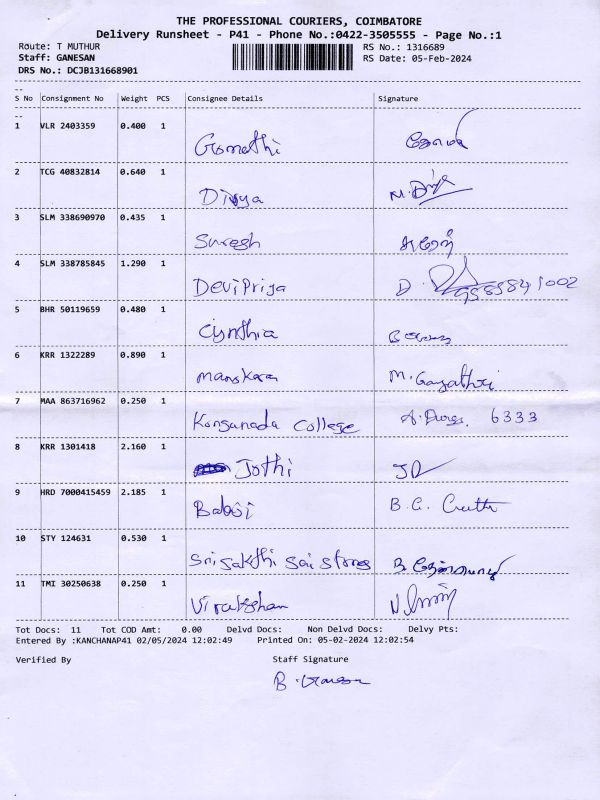 THE PROFESSIONAL COURIERS, COIMBATORE
Delivery Runsheet - P41 - Phone No.:0422-3505555 - Page No.:1
Route: T MUTHUR RS No.: 1316689
Staff: GANESAN RS Date: 05-Feb-2024
DRS No.: DCJB131668901
S No Consignment No Weight PCS Consignee Details Signature
1 VLR 2403359 0.400 1 Gomathi
2 TCG 40832814 0.640 1 Divya M. Divya
3 SLM 338690970 0.435 1 Suresh
4 SLM 338785845 1.290 1 DeviPriya D.
5 BHR 50119659 0.480 1 Cynthia
6 KRR 1322289 0.890 1 Manskara M. Gayathri
7 MAA 863716962 0.250 1 Kongunadu College 6333
8 KRR 1301418 2.160 1 Jothi JD
9 HRD 7000415459 2.185 1 Balaji B.G.
10 STY 124631 0.530 1 Sri Sakthi Sai Stores
11 TMI 30250638 0.250 1
Tot Docs: 11 Tot COD Amt: 0.00 Delvd Docs: Non Delvd Docs: Delvy Pts:
Entered By :KANCHANAP41 02/05/2024 12:02:49 Printed On: 05-02-2024 12:02:54
Verified By Staff Signature